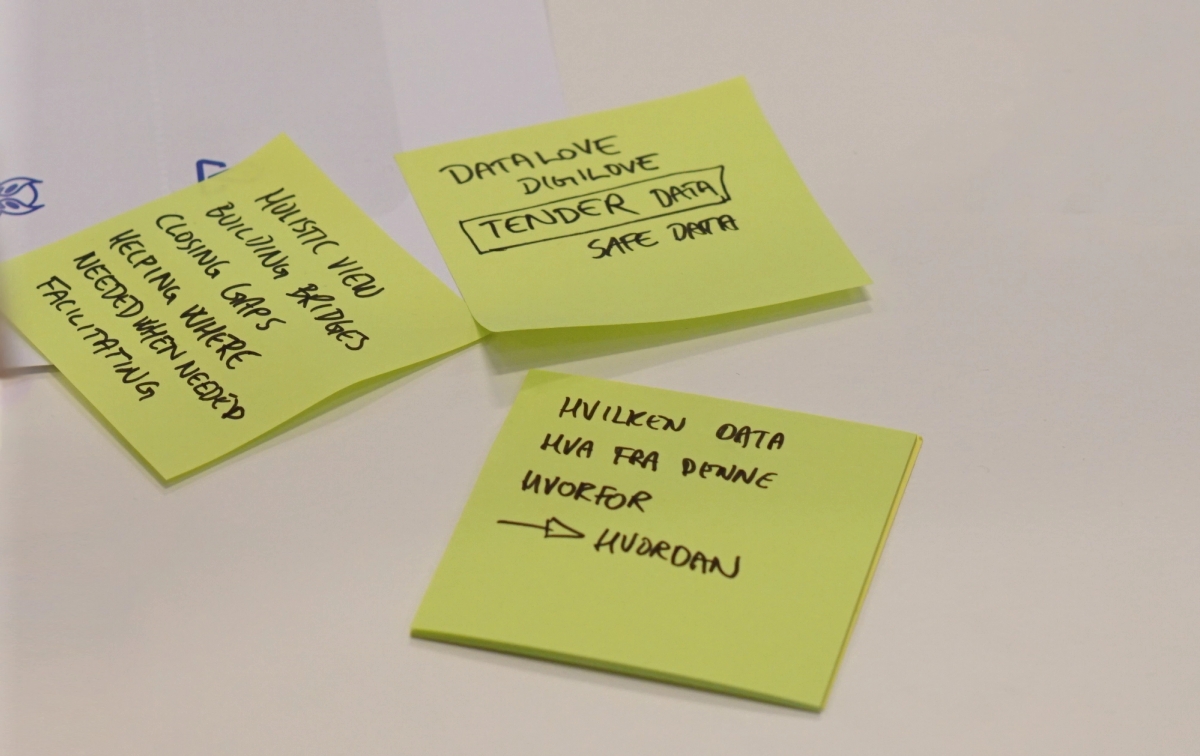 HOLISTIC VIEW
BUILDING BRIDGES
CLOSING GAPS
HELPING WHERE
NEEDED WHEN NEEDED
FACILITATING
DATALOVE
DIGILOVE
TENDER DATA
SAFE DATA
HVILKEN DATA
HVA FRA DENNE
HVORFOR
→ HVORDAN